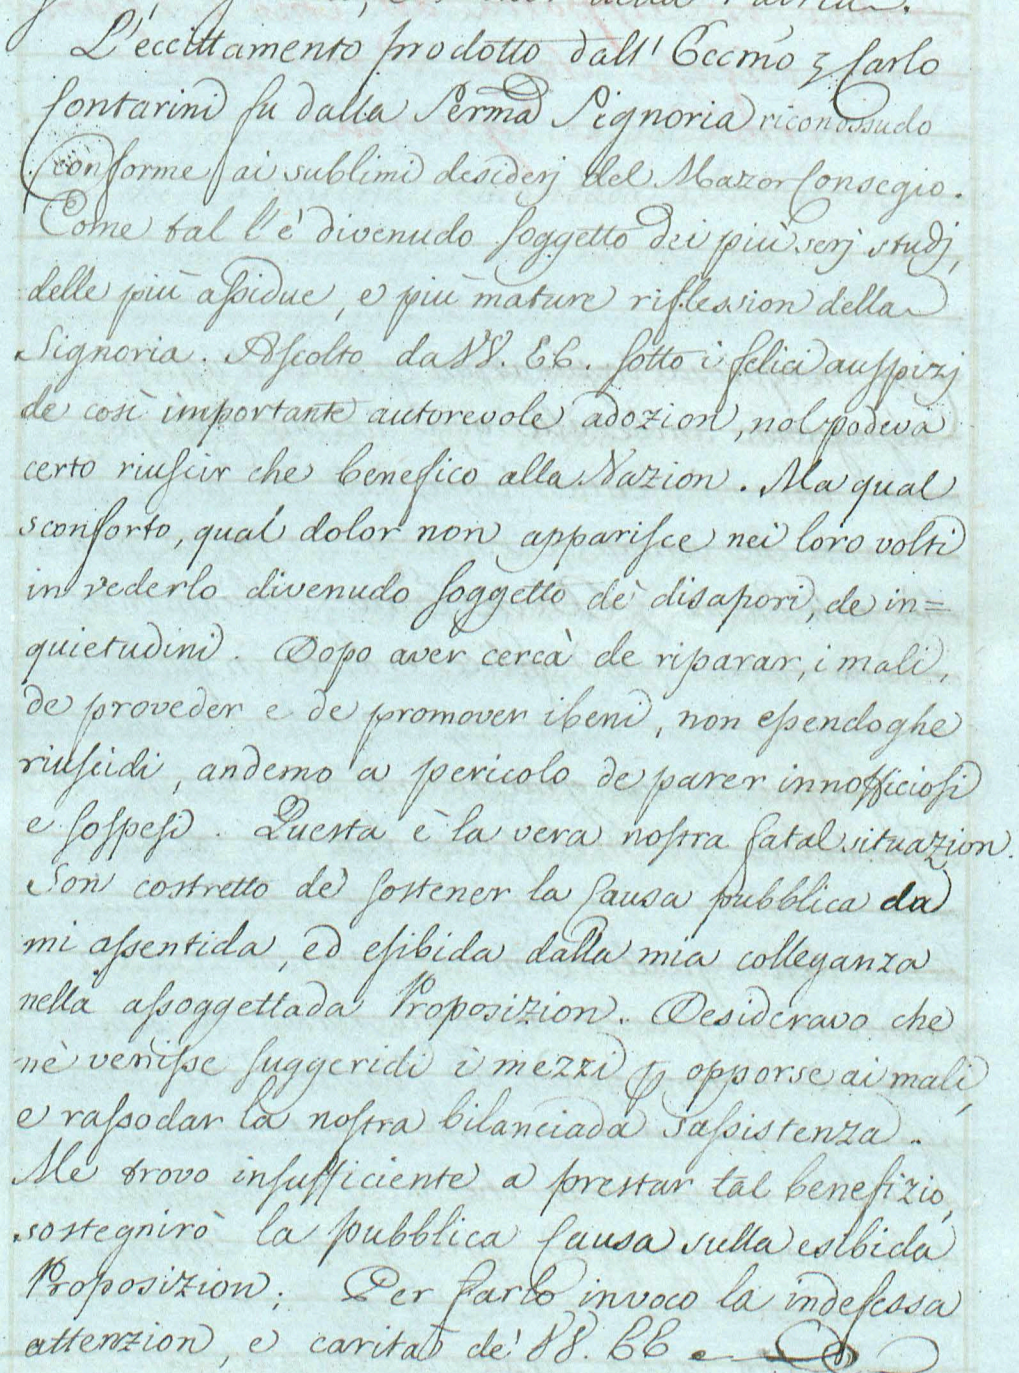 L'eccittamento prodotto dall' Eccmo ʒ Carlo
Contarini fu dalla Serma Signoria riconossudo
conforme ai sublimi desiderj del Mazor Consegio.
Come tal l'è divenudo soggetto dei più serj studj,
delle più assidue, e più mature riflession della
Signoria. Ascolto da VV. EE. sotto i felici auspizj
de così importante autorevole adozion, nol podeva
certo riuscir che benefico alla Nazion. Ma qual
sconforto, qual dolor non apparisce nei loro volti
in vederlo divenudo soggetto de' disapori, de in=
quietudini. Dopo aver cercà de riparar, i mali,
de proveder e de promover i beni, non essendoghe
riuscidi, andemo a pericolo de parer innofficiosi
e sospesi. Questa è la vera nostra fatal situazion.
Son costretto de sostener la Causa pubblica da
mi assentida, ed esibida dalla mia colleganza
nella assoggettada Proposizion. Desideravo che
nè venisse suggeridi i mezzi ꝑ opporse ai mali,
e rassodar la nostra bilanciada sassistenza.
Me trovo insufficiente a prestar tal benefizio,
sostegnirò la pubblica Causa sulla esibida
Proposizion; Per farlo invoco la indefessa
attenzion, e carità de' VV. EE